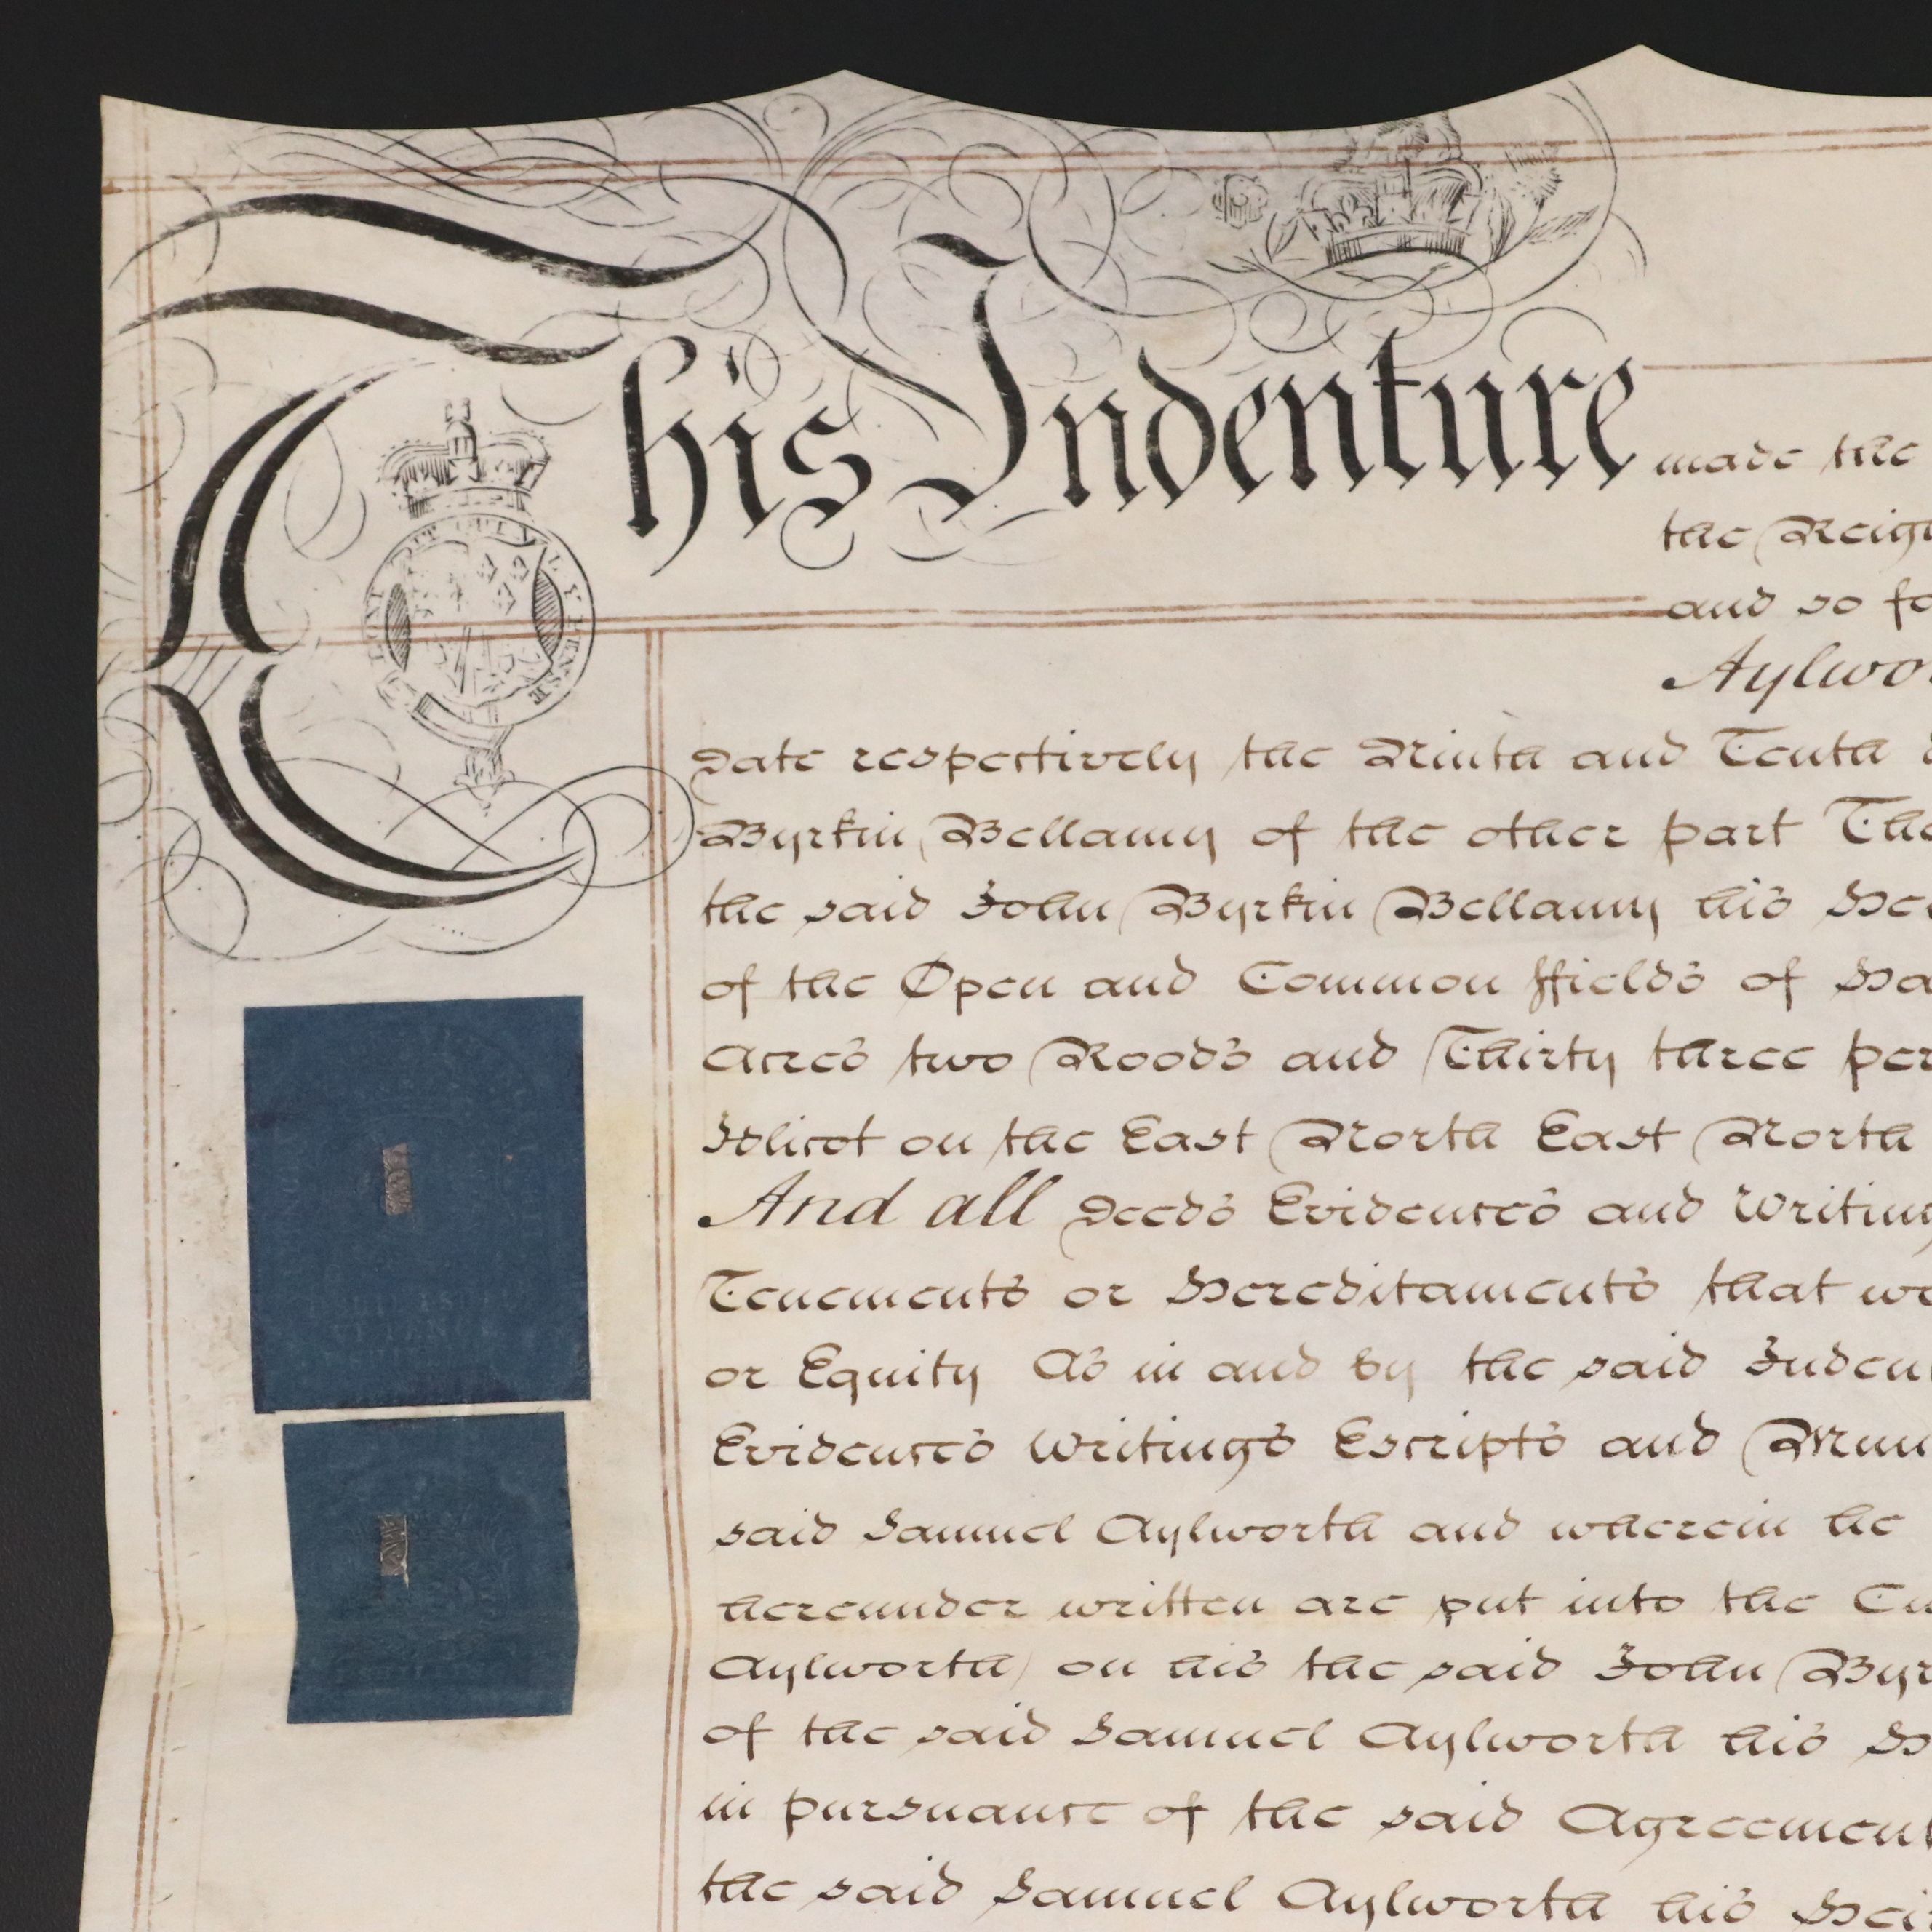 This Indenture made the
the Reign
and so fo
Aylwor
Date respectively the Ninth and Tenth
Byrkin Bellamy of the other part The
the said John Byrkin Bellamy his Hei
of the Open and Common ffields of Ha
Acres two Roods and Thirty three per
Idlicot on the East North East North
And all Deeds Evidences and Writing
Tenements or Hereditaments that we
or Equity As in and by the said Inden
Evidences Writings Escripts and Mun
said Samuel Aylworth and wherein he
hereunder written are put into the Cu
Aylworth on his the said John Byr
of the said Samuel Aylworth his H
in pursuance of the said Agreement
the said Samuel Aylworth his Hei